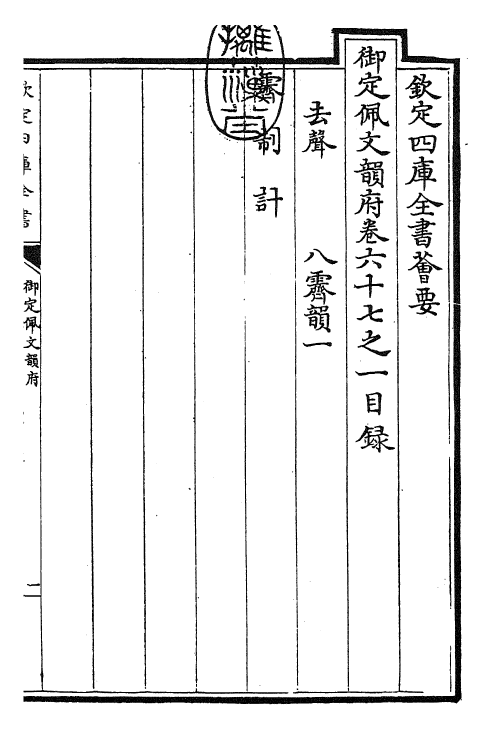 欽定四庫全書薈要
御定佩文韻府卷六十七之一目録
去聲 八霽韻一
霽 制 計
欽定四庫全書
御定佩文韻府
一